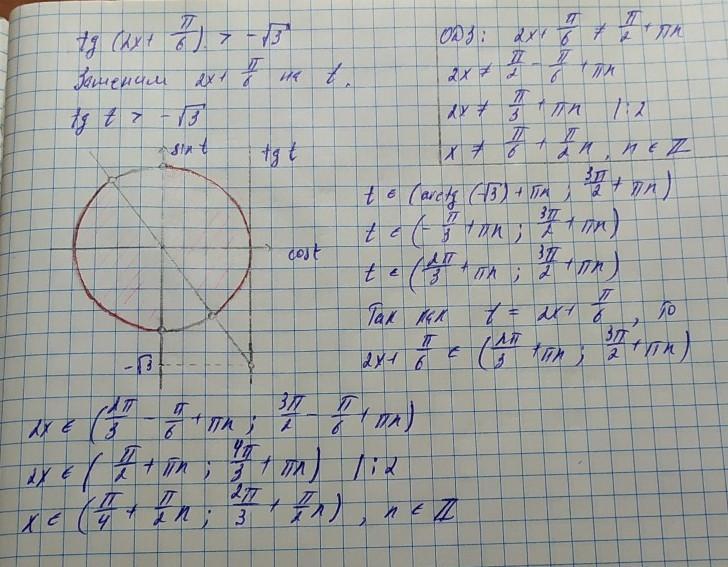 tg (2x + π/6) > -√3
Заменим 2x + π/6 на t.
tg t > -√3
ОДЗ: 2x + π/6 ≠ π/2 + πn
2x ≠ π/2 - π/6 + πn
2x ≠ π/3 + πn |:2
x ≠ π/6 + π/2 n, n ∈ ℤ
sin t
tg t
cos t
-√3
t ∈ (arctg (-√3) + πn ; 3π/2 + πn)
t ∈ (-π/3 + πn ; 3π/2 + πn)
t ∈ (2π/3 + πn ; 3π/2 + πn)
Так как t = 2x + π/6, то
2x + π/6 ∈ (2π/3 + πn ; 3π/2 + πn)
2x ∈ (2π/3 - π/6 + πn ; 3π/2 - π/6 + πn)
2x ∈ (π/2 + πn ; 4π/3 + πn) |:2
x ∈ (π/4 + π/2 n ; 2π/3 + π/2 n), n ∈ ℤ